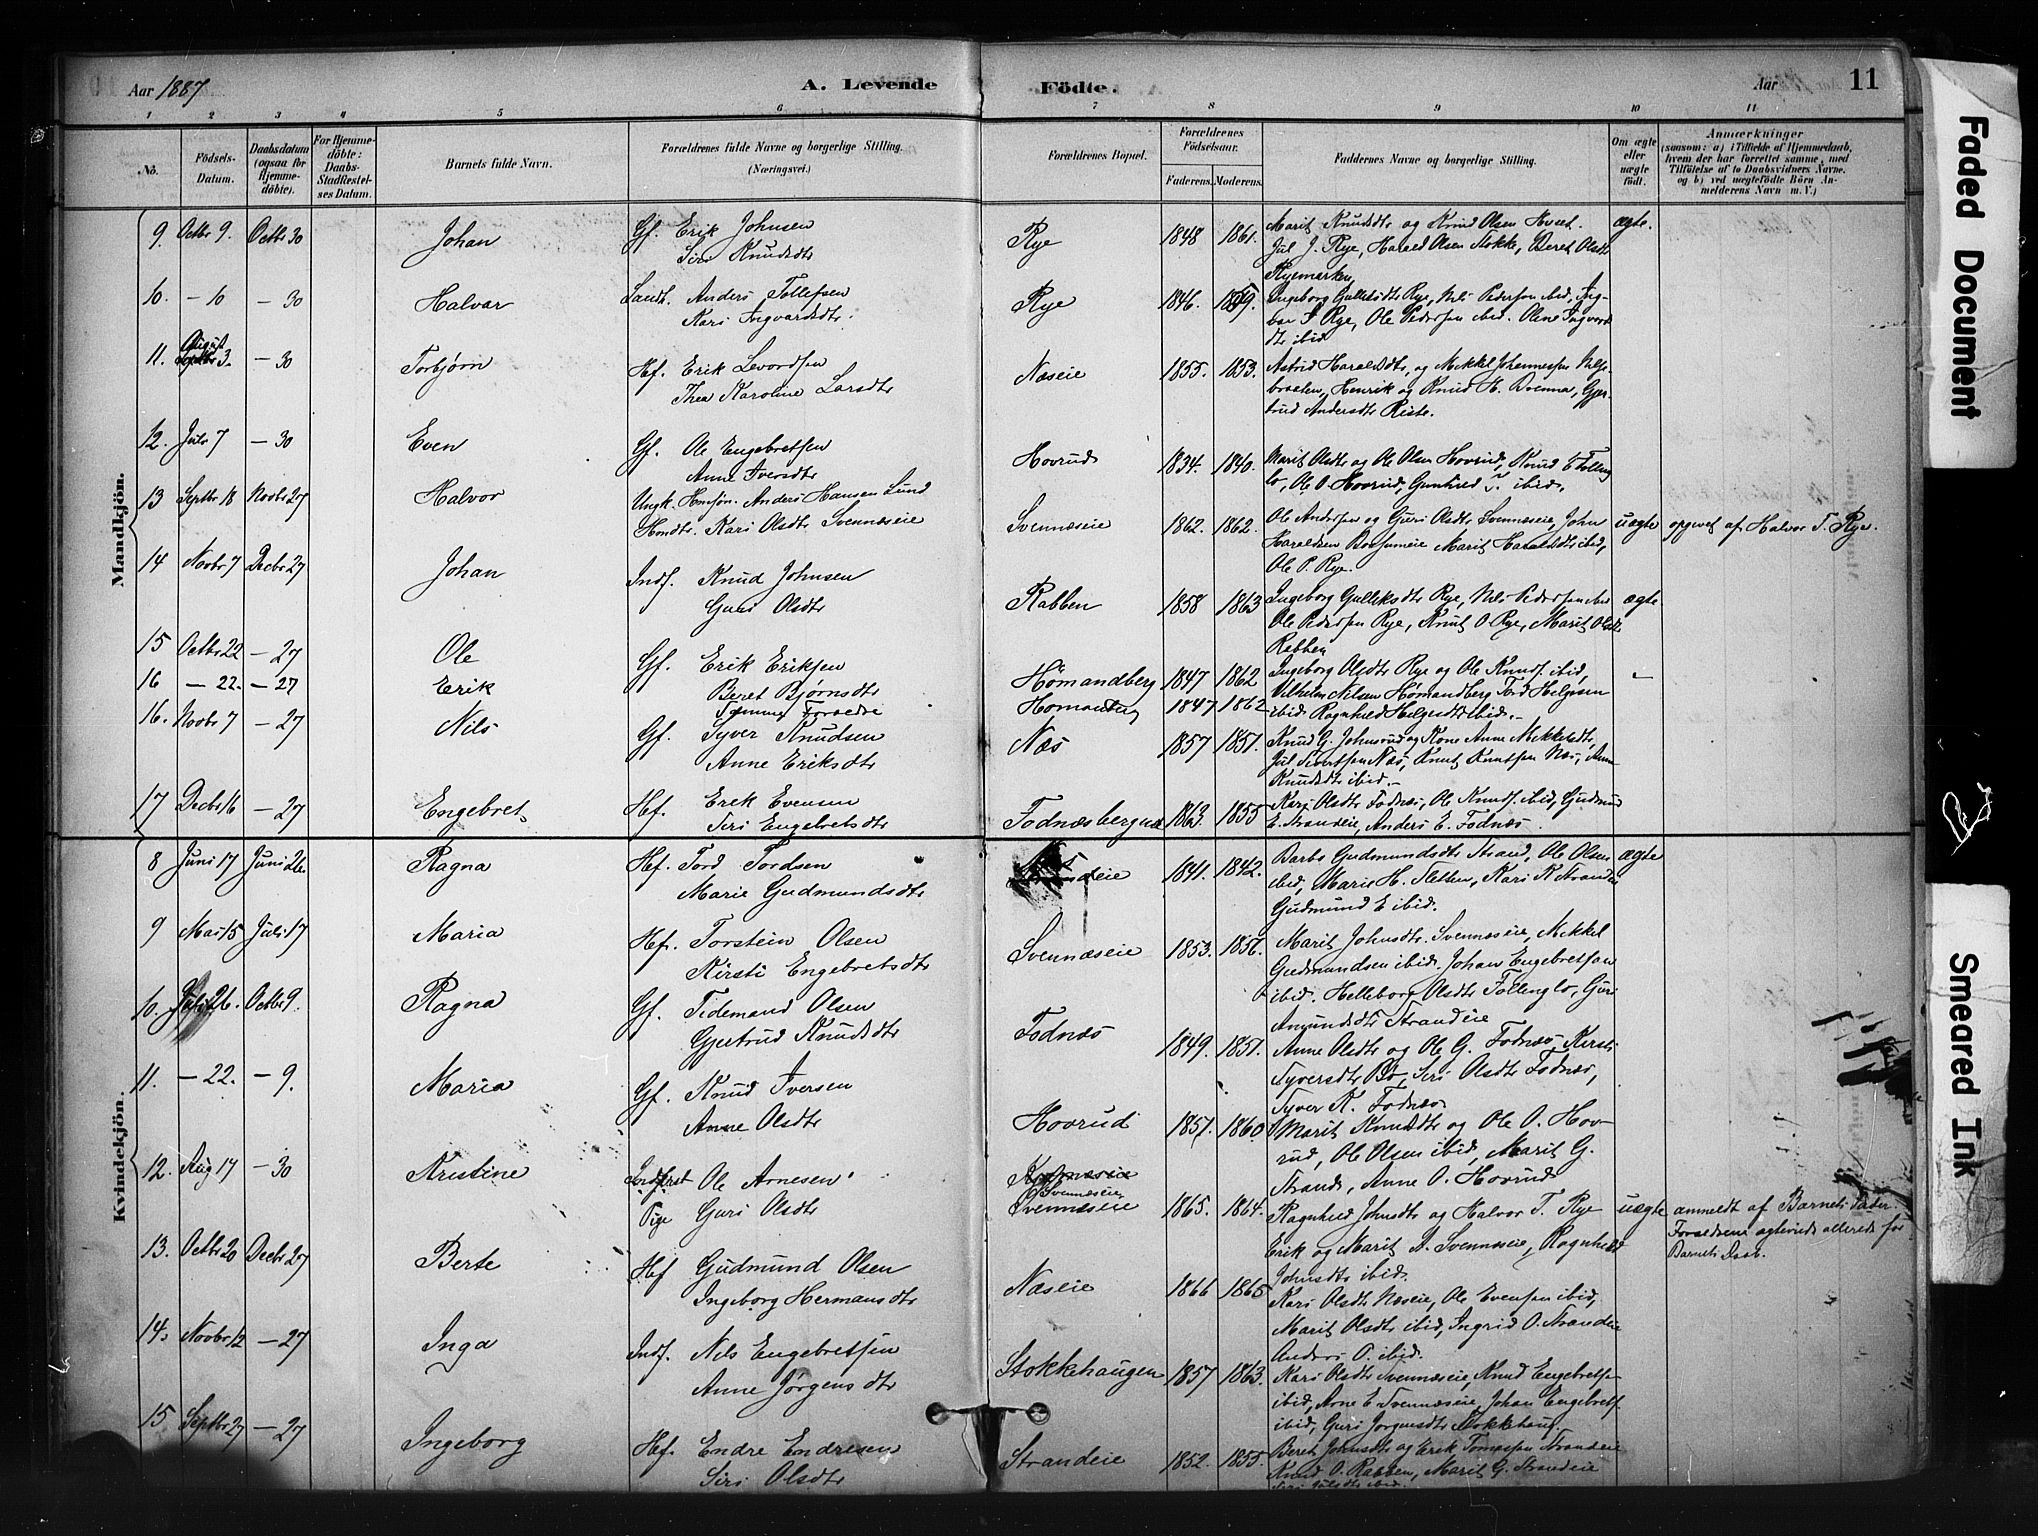 Aar 1887
A. Levende
Födte.
Aar
11
1 2 3 4 5 6 7 8 9 10 11
No.
Födsels-Datum.
Daabsdatum (ogsaa for Hjemmedöbte).
For Hjemmedöbte: Daabs-Stadfæstelses Datum.
Barnets fulde Navn.
Forældrenes fulde Navne og borgerlige Stilling. (Næringsvei.)
Forældrenes Bopæl.
Forældrenes Födselsaar.
Faderens. Moderens.
Faddernes Navne og borgerlige Stilling.
Om ægte eller uægte födt.
Anmærkninger
(saasom: a) i Tilfælde af Hjemmedaab, hvem der har forrettet samme, med Tilföielse af to Daabsvidners Navne. og b) ved uægtefödte Börn Anmelderens Navn m. V.)
Mandkjön.
9. Octbr 9. Octbr 30 Johan Gf. Erik Johnsen
Siri Knudsdtr
Rye 1848 1861. Marit Knudsdtr og Knud Olsen Kvæt. ægte.
Jul J. Rye, Harald Olsen Stokke, Beret Olsdtr
Ryemarken
10. - 10 - 30 Halvar Landh. Anders Tollefsen
Kari Ingvardsdtr.
Rye 1846. Ingeborg Gulliksdtr Rye, Nils Pedersen ibid, Ing-
var T. Rye, Ole Pedersen ibid. Olene Ingvards
dtr ibid
11. August 3. - 30 Torbjørn Hf. Erik Levordsen
Thea Karoline Larsdtr
Næseie 1855. 1853. Astrid Haraldsdtr, og Mikkel Johannessen
braaten, Henrik og Knud H. Dvenna, Gjer-
trud Andersdtr Reste.
12. Juli 7 - 30 Even Gf. Ole Engebretsen
Anne Iversdtr
Hovrud 1834. 1840. Marit Olsdtr og Ole Olsen Hovrud, Knud E Folleng
lo, Ole O. Hovrud, Gunhild ibid.
13 Septbr 18 Novbr 27 Halvor Ungk. Husføn. Anders Hansen Lund
Hmdtr. Kari Olsdtr Svennæseie
Svennæseie 1862. 1862. Ole Andersen og Guri Olsdtr Svennæseie, John uægte opgivet af Halvor T. Rye.
Haraldsen Marit Haraldsdtr ibid,
Ole P. Rye.
14 Novbr 7 Decbr 27 Johan Indf. Knud Johnsen
Guri Olsdtr
Rabben 1858 1863 Ingeborg Gulliksdtr Rye, Nils Pedersen ibid ægte
Ole Pedersen Rye, Knut O. Rye, Marit Olsdtr
Rabben
15 Octbr 22 - 27 Ole Gf. Erik Eriksen
16 - 22. - 27 Erik Beret Bjørnsdtr
Hømandberg 1847 1862 Ingeborg Olsdtr Rye og Ole Knuds. ibid,
Vilhelm Nilsen Hømandberg Tord Helgesen
ibid. Ragnhild Helgesdtr ibid.
Homandbg 1847 1862
16. Novbr 7 - 27 Nils Gf. Syver Knudsen
Anne Eriksdtr
Næs 1857 1851. Knud G. Johnsrud og Kone Anne Mikkelsdtr,
Jul Sivertsen Næs, Knut Knutsen Næs, Anne
Knudsdtr ibid.
17 Decbr 16 - 27 Engebret Hf. Erik Evensen
Siri Engebretsdtr
1863. 1855 Kari Olsdtr Fodnæs, Ole Knuds. ibid, Gudmund
E. Strandeie, Anders E. Fodnæs.
Kvindekjön.
8 Juni 17 Juni 26 Ragna Hf. Tord Tordsen
Marie Gudmundsdtr
1841. 1842. Barbo Gudmundsdtr Strand, Ole Olsen ægte
ibid, Marie H. Sletten, Kari K Strande
Gudmund E ibid.
9 Mai 15 Juli 17 Maria Hf. Torstein Olsen
Kirsti Engebretsdtr
Svennæseie 1853. 1856. Marit Johnsdtr. Svennæseie, Mikkel
Gudmundsen ibid. Johan Engebretsen
ibid. Helleborg Olsdtr Follenglo, Guri
Amundsdtr Strandeie
10. Juli 26. Octbr 9. Ragna Gf. Tidemand Olsen
Gjertrud Knudsdtr
Fodnæs 1849. 1851. Anne Olsdtr og Ole G. Fodnæs, Kirsti
Syversdtr Bø, Siri Olsdtr Fodnæs,
Syver K. Fodnæs
11. - 22. - 9. Maria Gf. Knud Iversen
Anne Olsdtr
Hovrud 1857. 1860 Marit Knudsdtr og Ole O. Hov-
rud, Ole Olsen ibid, Marit G.
Strande, Anne O. Hovrud
12. Aug 17 - 30 Kristine Indferst Ole Arnesen
Pige Guri Olsdtr
Svennæseie
Svennæseie 1865. 1864. Ragnhild Johnsdtr og Halvor T. Rye uægte anmeldt af Barnets Fader.
Erik og Marit A. Svennæseie, Ragnhild Forældrene agtevied allerede før
Johnsdtr ibid. Barnets Daab.
13. Octbr 20 Decbr 27 Berte Hf Gudmund Olsen
Ingeborg Hermansdtr
Næseie 1866 1865 Kari Olsdtr Næseie, Ole Evensen ibid,
Marit Olsdtr ibid, Ingrid O. Strandeie
Anders O. ibid.
14. Novbr 12 - 27 Inga Indf. Nils Engebretsen
Anne Jørgensdtr
Stokkehaugen 1857 1863. Kari Olsdtr Svennæseie, Knud Engebretsen
ibid, Arne E Svennæseie, Johan Engebretsf
ibid, Guri Jorgensdtr Stokkehaug
15 Septbr 27 - 27 Ingeborg Hf. Endre Endresen
Siri Olsdtr
Strandeie 1852. 1855. Beret Johnsdtr og Erik Tomassen Strandeie
Knud O. Rabben, Marit G. Strandeie
Siri Julsdtr ibid.
Faded Document
Smeared Ink